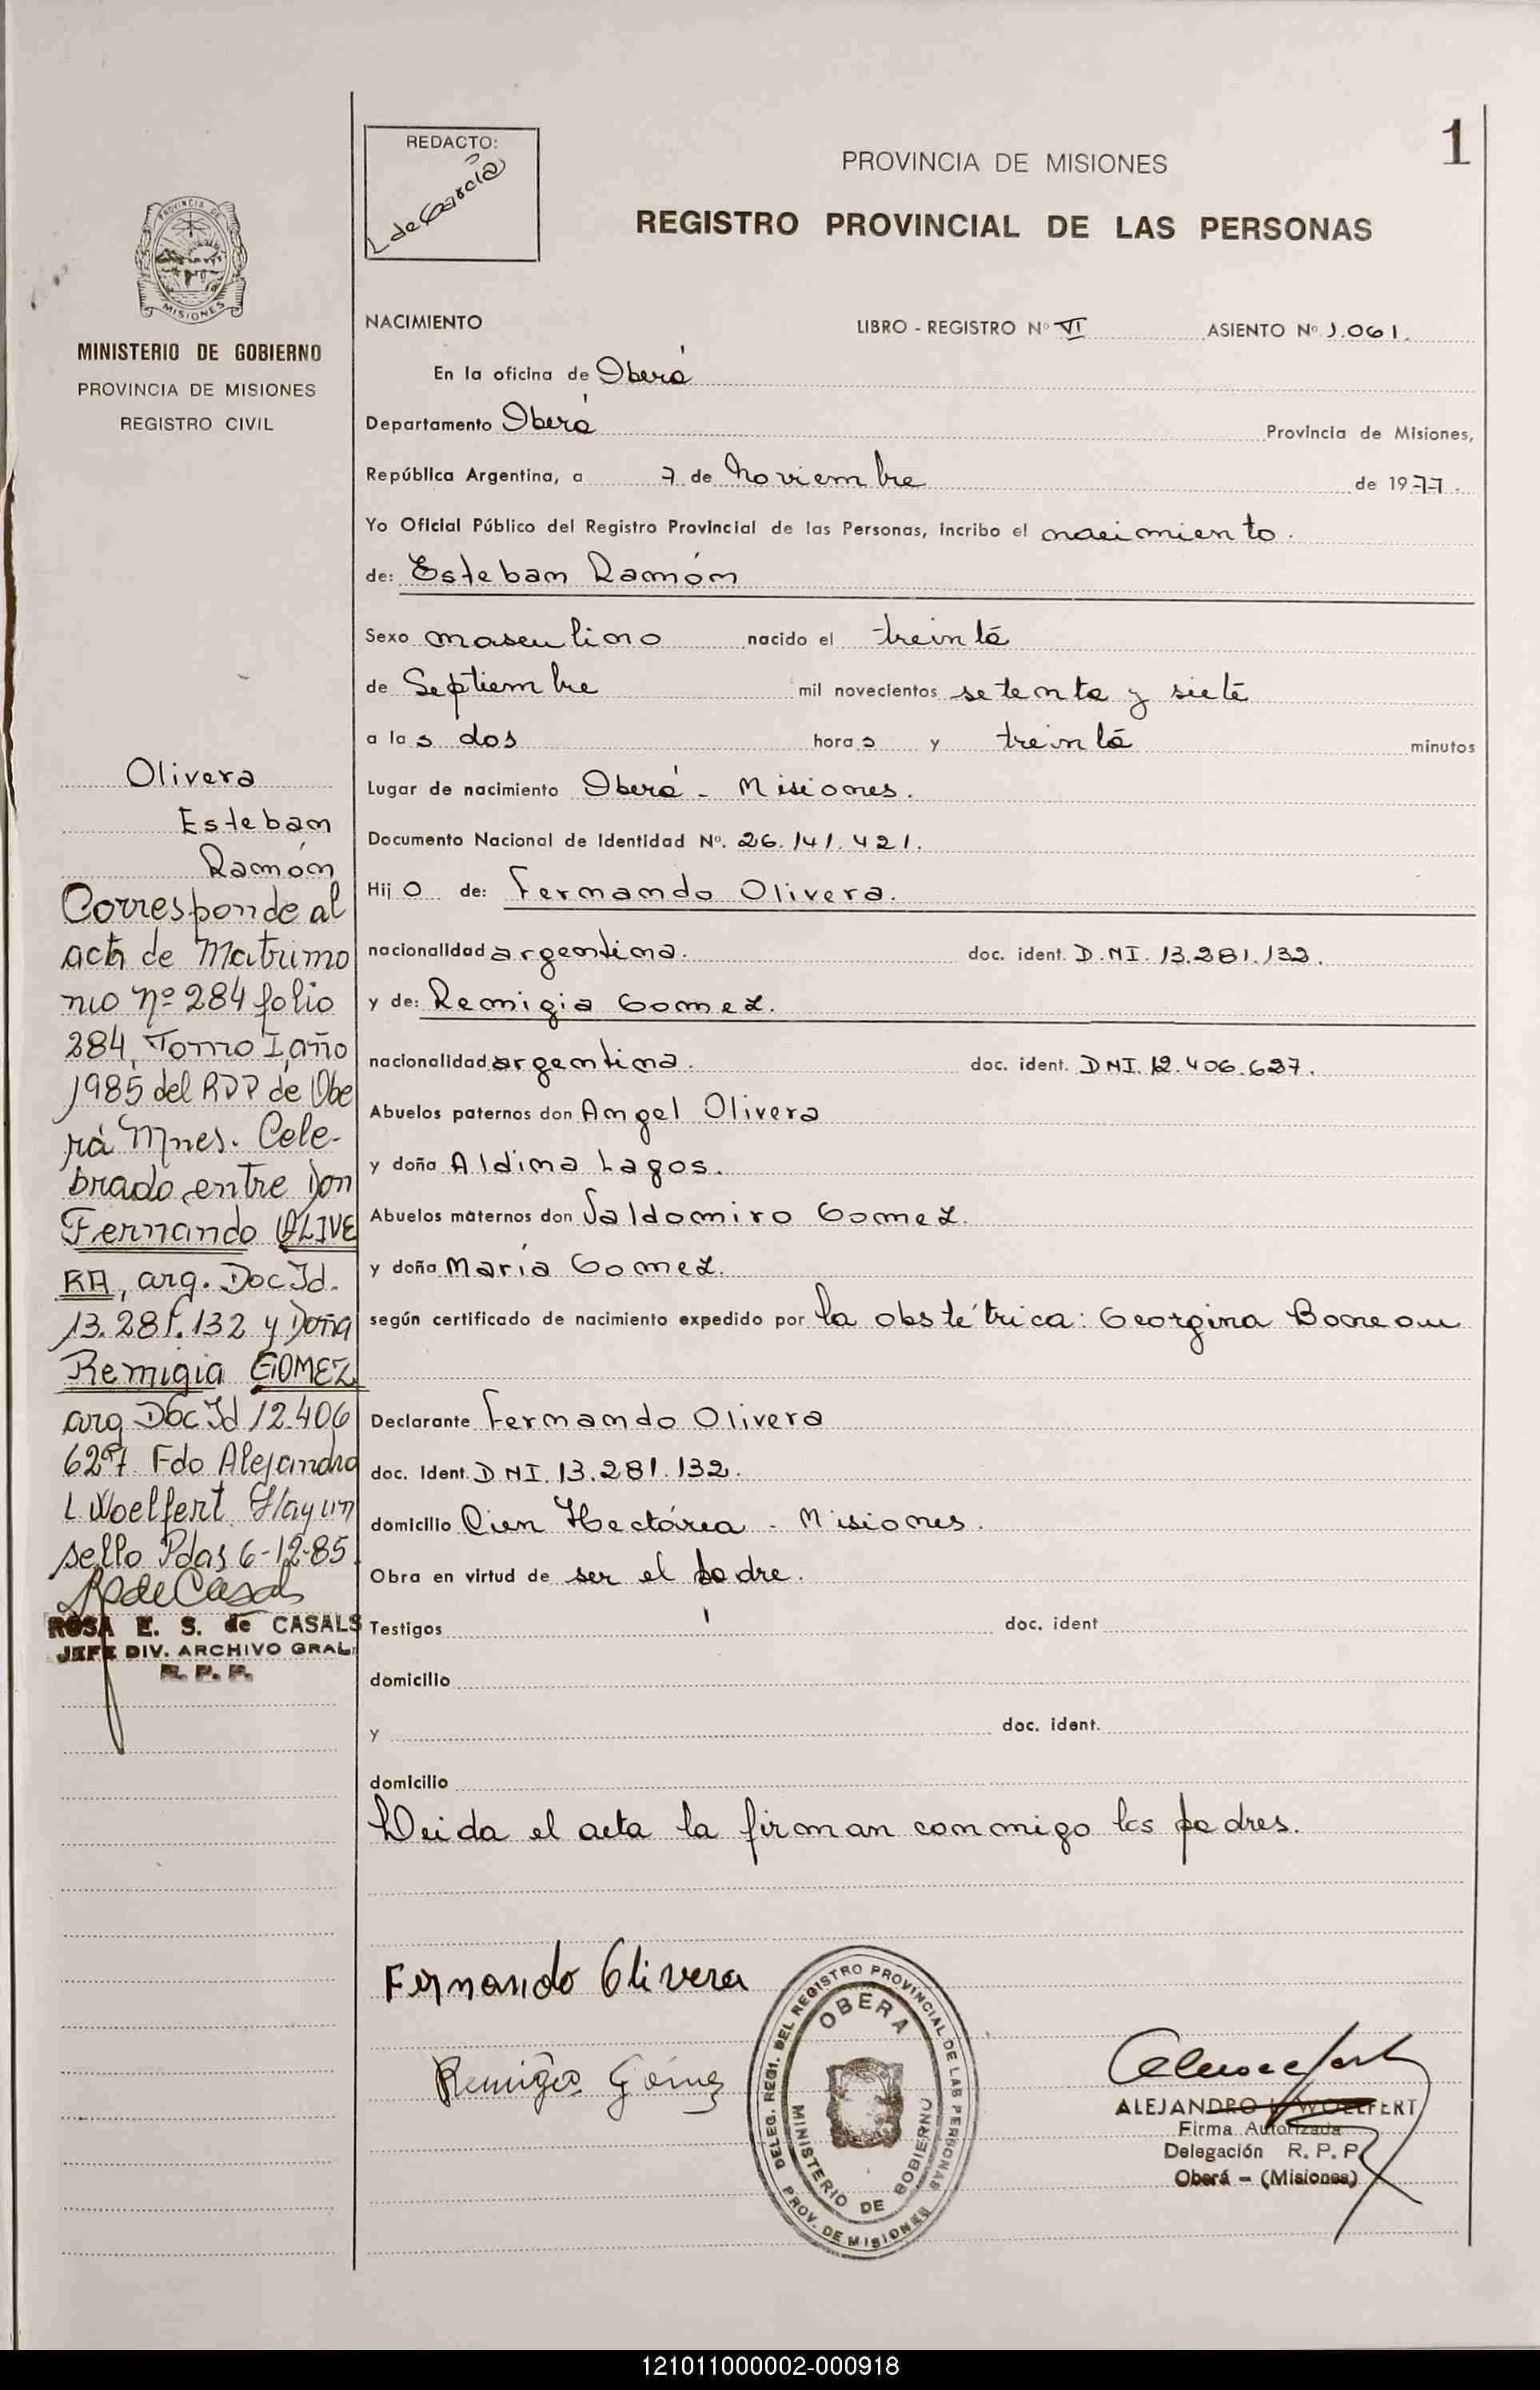 1
REDACTO:
L de García
PROVINCIA DE MISIONES
REGISTRO PROVINCIAL DE LAS PERSONAS
PROVINCIA DE
MISIONES
MINISTERIO DE GOBIERNO
PROVINCIA DE MISIONES
REGISTRO CIVIL
NACIMIENTO LIBRO - REGISTRO Nº VI ASIENTO Nº 1.061.
En la oficina de Oberá
Departamento Oberá Provincia de Misiones,
República Argentina, a 7 de Noviembre de 1977.
Yo Oficial Público del Registro Provincial de las Personas, incribo el nacimiento.
de: Esteban Ramón
Sexo masculino nacido el treinta
de Septiembre mil novecientos setenta y siete
a las dos horas y treinta minutos
Lugar de nacimiento Oberá - Misiones.
Documento Nacional de Identidad Nº. 26.141.421.
Hijo de: Fernando Olivera.
nacionalidad argentina. doc. ident. D.NI. 13.281.132.
y de: Remigia Gomez.
nacionalidad argentina. doc. ident. DNI. 12.406.627.
Abuelos paternos don Angel Olivera
y doña Aldina Lagos.
Abuelos maternos don Valdomiro Gomez.
y doña María Gomez.
según certificado de nacimiento expedido por la obstétrica: Georgina
Declarante Fernando Olivera
doc. Ident. DNI. 13.281.132.
domicilio Cien Hectárea - Misiones.
Obra en virtud de ser el padre.
Testigos doc. ident
domicilio
y doc. ident.
domicilio
Leida el acta la firman conmigo los padres.
Olivera
Esteban
Ramón
Corresponde al
acta de Matrimo
nio Nº 284 folio
284, Tomo I año
1985 del RPP de Obe
rá Mnes. Cele-
brado entre Don
Fernando OLIVE
RA, arg. Doc Id.
13.281.132 y Doña
Remigia GOMEZ
arg Doc Id 12.406
627 Fdo Alejandro
L Woelfert. Hay un
sello Pdas 6-12-85.
R de Casals
ROSA E. S. de CASALS
JEFE DIV. ARCHIVO GRAL.
R. P. P.
Fernando Olivera
Remigia Gómez
DELEG. REGI. DEL REGISTRO PROVINCIAL DE LAS PERSONAS
OBERA
MINISTERIO DE GOBIERNO
PROV. DE MISIONES
ALEJANDRO L. WOELFERT
Firma Autorizada
Delegación R. P. P.
Oberá - (Misiones)
121011000002-000918